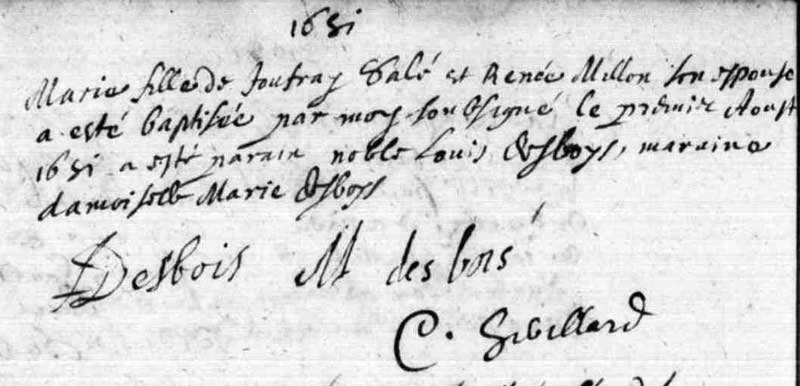 1651
Marie fille de Joufray Salé et Renée Millon son espouse
a esté baptisée par moy soubsigné le premier Aoust
1651 a esté parain noble Louis desboys, maraine
damoiselle Marie desboys
LDesbois M des bois
C.